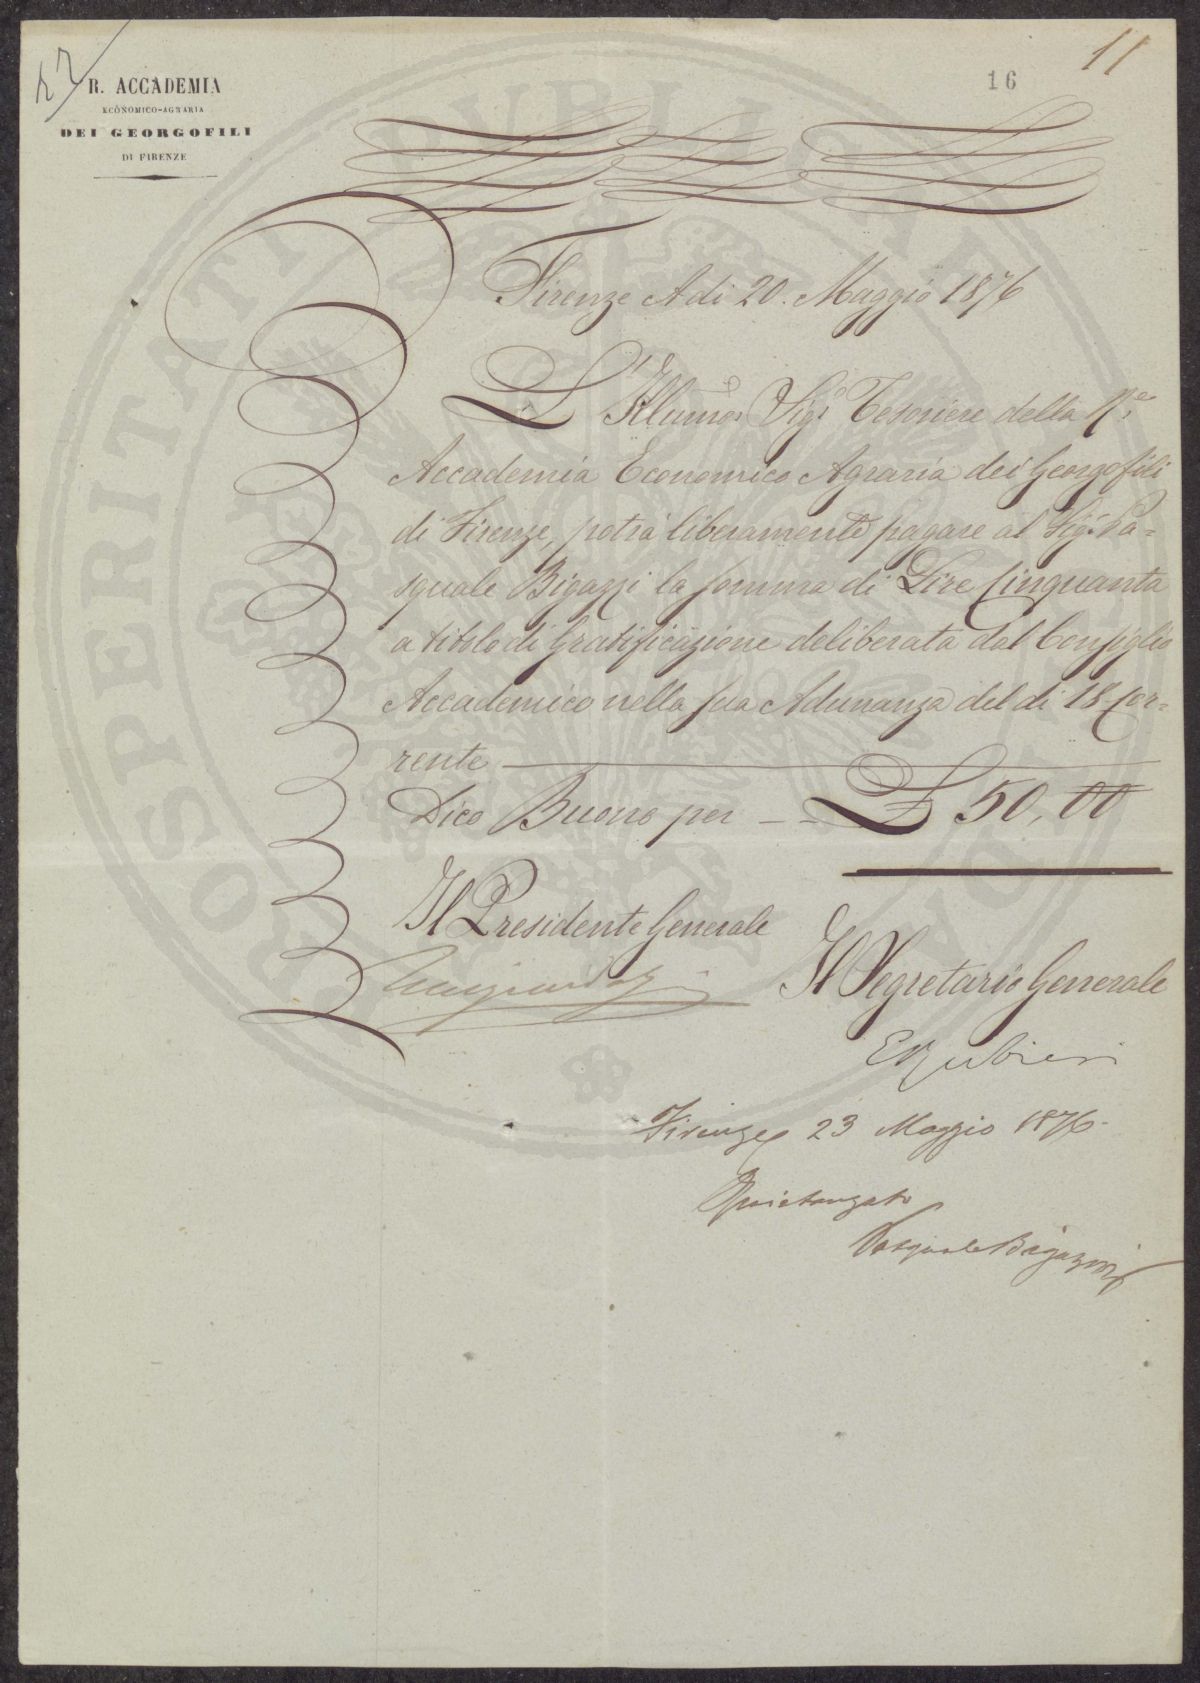 11
16
R. ACCADEMIA
ECONOMICO-AGRARIA
DEI GEORGOFILI
DI FIRENZE
PROSPERITATI PUBLICAE
Firenze A di 20. Maggio 1876
L'Illumo. Sigr. Tesoriere della Re.
Accademia Economico Agraria dei Georgofili
di Firenze, potrà liberamente pagare al Sigr. Pa=
squale Bigazzi la somma di Lire Cinquanta
a titolo di Gratificazione deliberata dal Consiglio
Accademico nella sua Adunanza del di 18 Cor=
rente
Dico Buono per -- £ 50,00
Il Presidente Generale
Il Segretario Generale
E Rubieri
Firenze 23 Maggio 1876.
Quietanzato
Pasquale Bigazzi